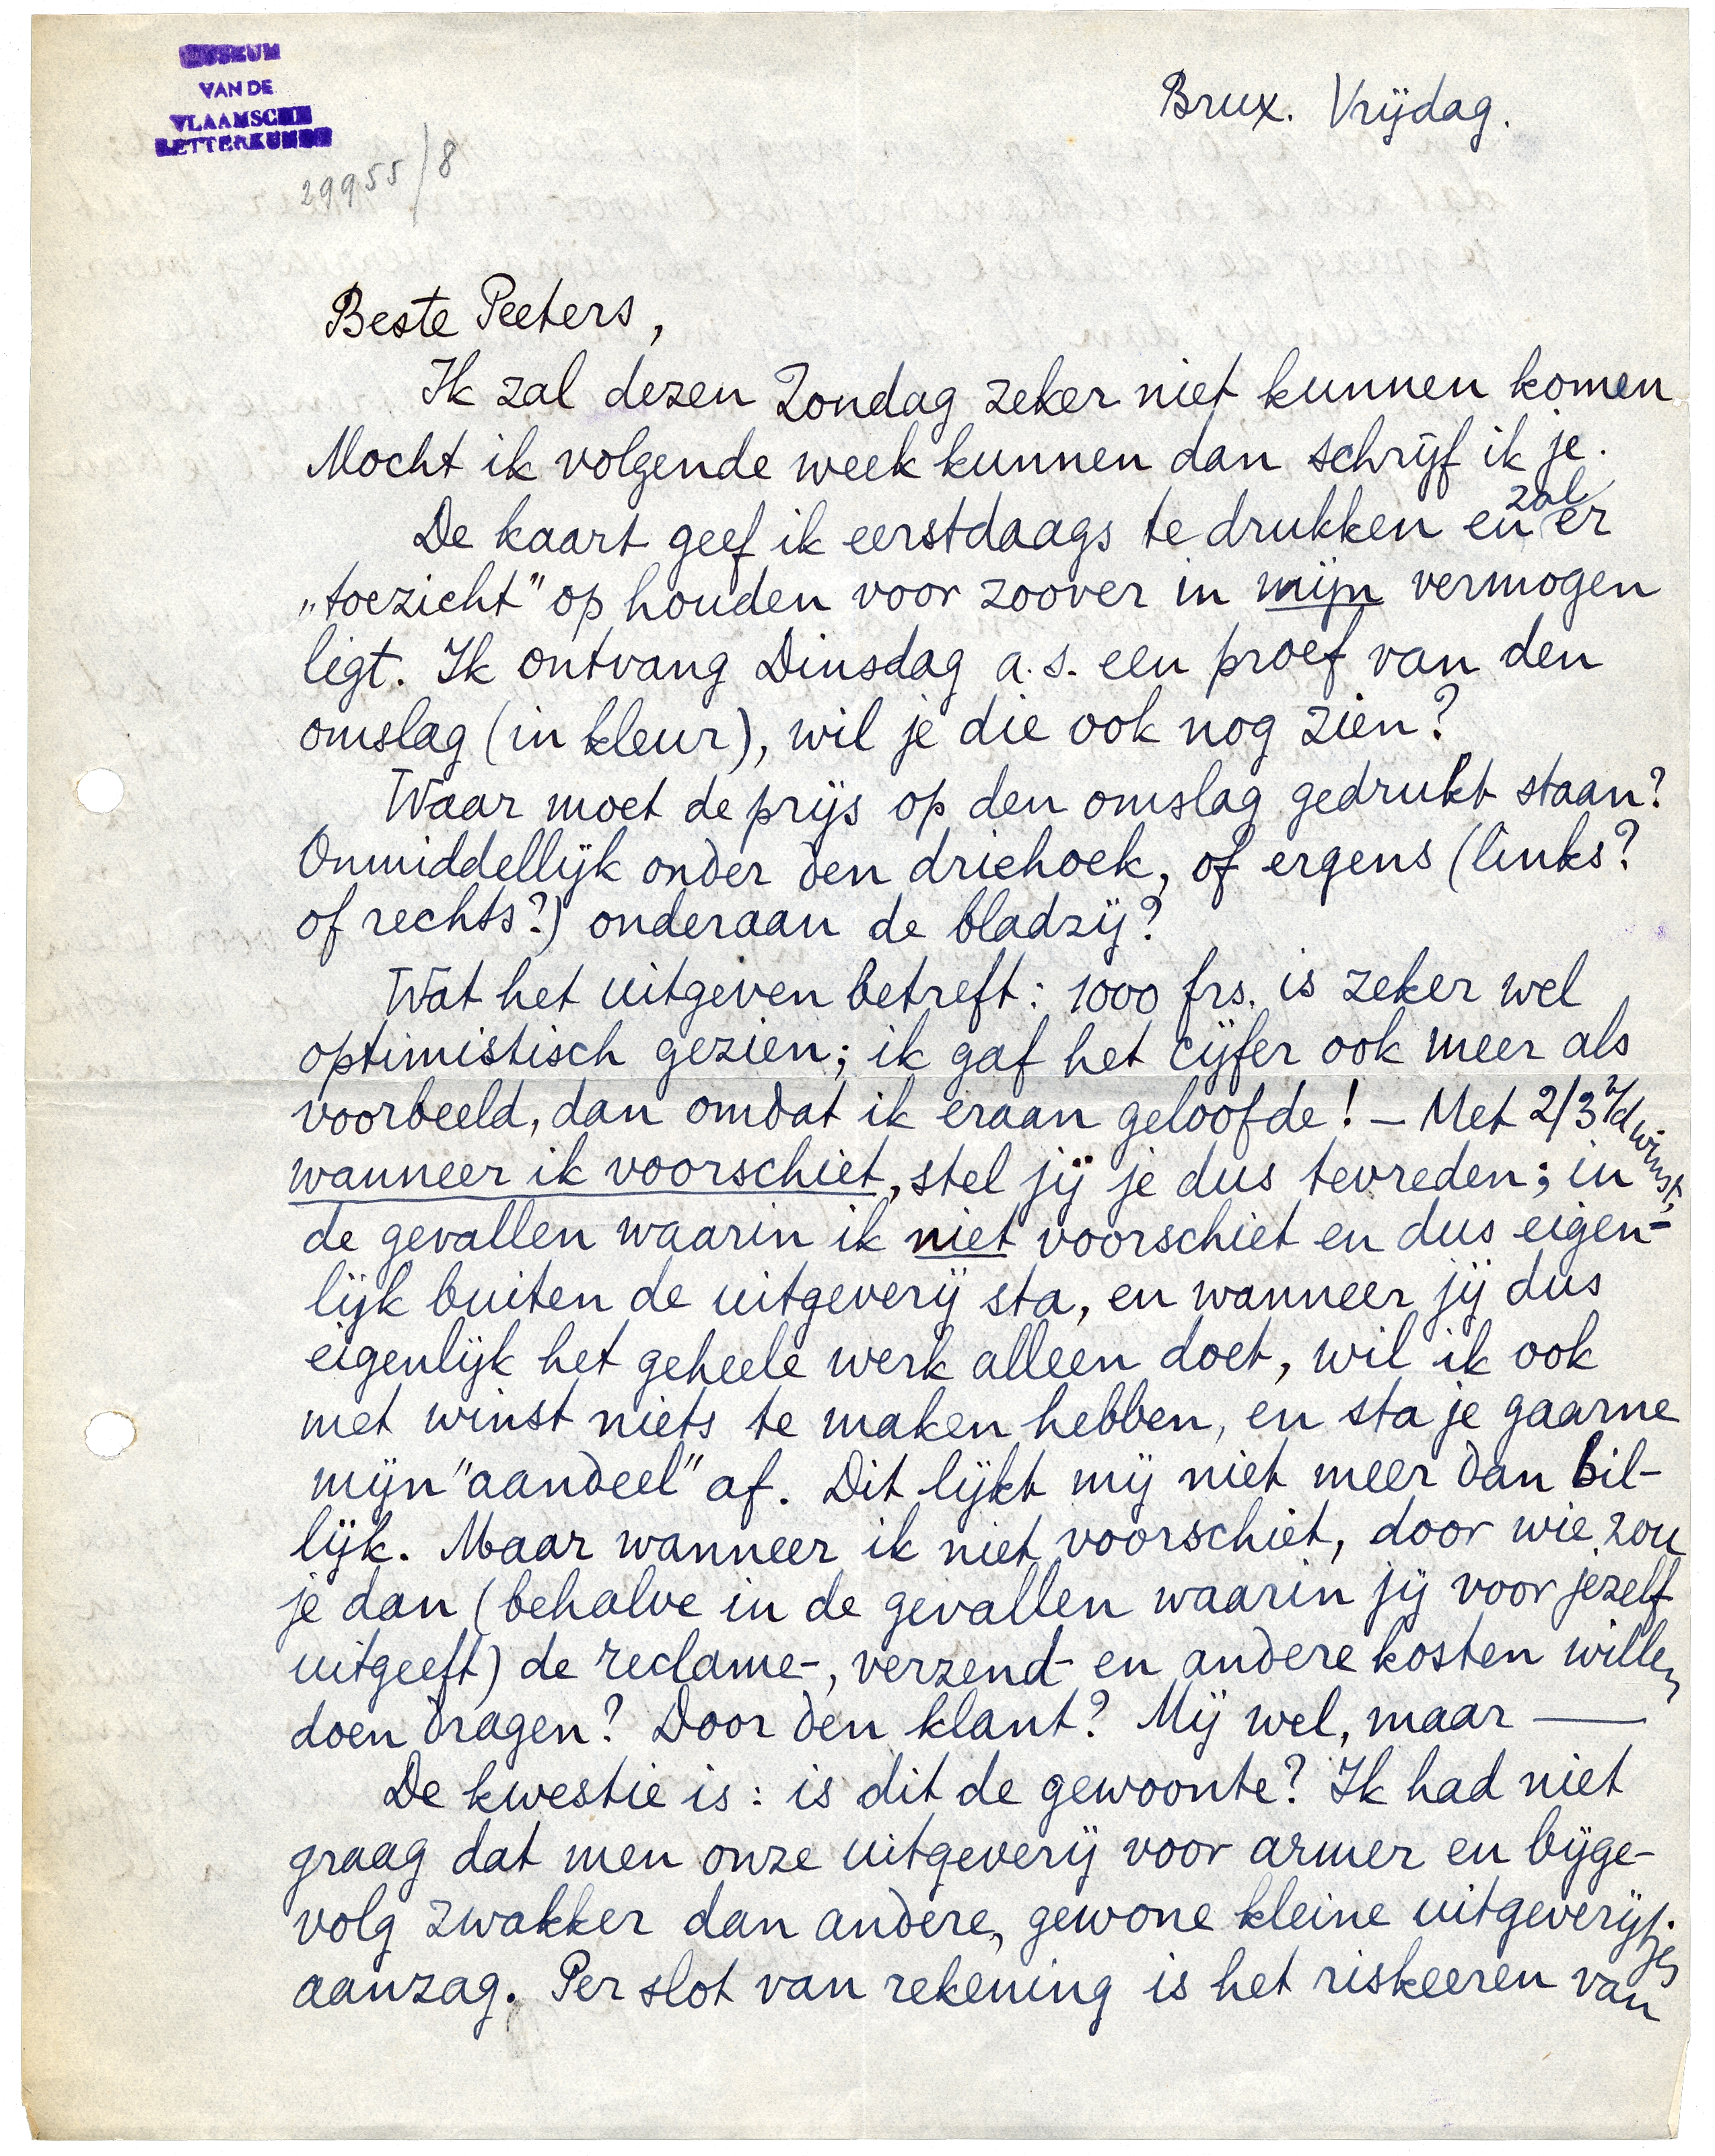 MUSEUM
VAN DE
VLAAMSCHE
LETTERKUNDE
29955/8
Brux. Vrijdag.
Beste Peeters,
Ik zal dezen Zondag zeker niet kunnen komen.
Mocht ik volgende week kunnen dan schrijf ik je.
De kaart geef ik eerstdaags te drukken en zal er
„toezicht" op houden voor zoover in mijn vermogen
ligt. Ik ontvang Dinsdag a.s. een proef van den
omslag (in kleur), wil je die ook nog zien?
Waar moet de prijs op den omslag gedrukt staan?
Onmiddellijk onder den driehoek, of ergens (links?
of rechts?) onderaan de bladzij?
Wat het uitgeven betreft: 1000 frs. is zeker wel
optimistisch gezien; ik gaf het cijfer ook meer als
voorbeeld, dan omdat ik eraan geloofde! – Met 2/3 v/d winst,
wanneer ik voorschiet, stel jij je dus tevreden; in
de gevallen waarin ik niet voorschiet en dus eigen-
lijk buiten de uitgeverij sta, en wanneer jij dus
eigenlijk het geheele werk alleen doet, wil ik ook
met winst niets te maken hebben, en sta je gaarne
mijn "aandeel" af. Dit lijkt mij niet meer dan bil-
lijk. Maar wanneer ik niet voorschiet, door wie zou
je dan (behalve in de gevallen waarin jij voor jezelf
uitgeeft) de reclame-, verzend- en andere kosten willen
doen dragen? Door den klant? Mij wel, maar —
De kwestie is: is dit de gewoonte? Ik had niet
graag dat men onze uitgeverij voor armer en bijge-
volg zwakker dan andere, gewone kleine uitgeverijtjes
aanzag. Per slot van rekening is het riskeeren van